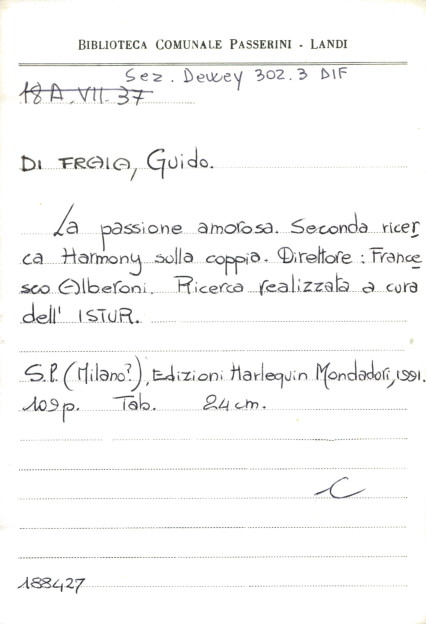 BIBLIOTECA COMUNALE PASSERINI - LANDI
Sez. Dewey 302.3 DIF
18A.VII.37
DI FRAIA, Guido.
La passione amorosa. Seconda ricer
ca Harmony sulla coppia. Direttore: France
sco Alberoni. Ricerca realizzata a cura
dell' ISTUR.
S.l. (Milano?), Edizioni Harlequin Mondadori, 1991.
109 p. Tab. 24 cm.
C
188427